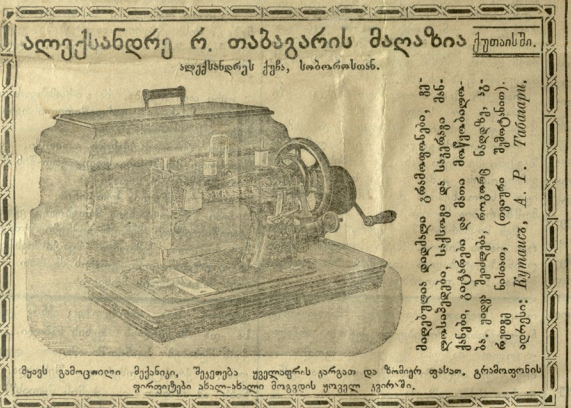 ალექსანდრე რ. თაბაგარის მაღაზია ქუთაისში.
ალექსანდრეს ქუჩა, სობოროსთან.
მიღებულია დიდძალი გრამოფონები, ველოსიპედები, საქსოვი და საკერავი მანქანები, გიტარები და მათი მოწყობილობა. ყიდვა შეიძლება, როგორც ნაღდზე, აგრეთვე ნისიათ, (თვიური შემოტანით).
ადრესი: Кутаисъ, А. Р. Табагари.
მყავს გამოცდილი მექანიკი, შეკეთება ყველაფრის კარგათ და ზომიერ ფასათ. გრამოფონის
ფირფიტები ახალ-ახალი მოგვდის ყოველ კვირაში.